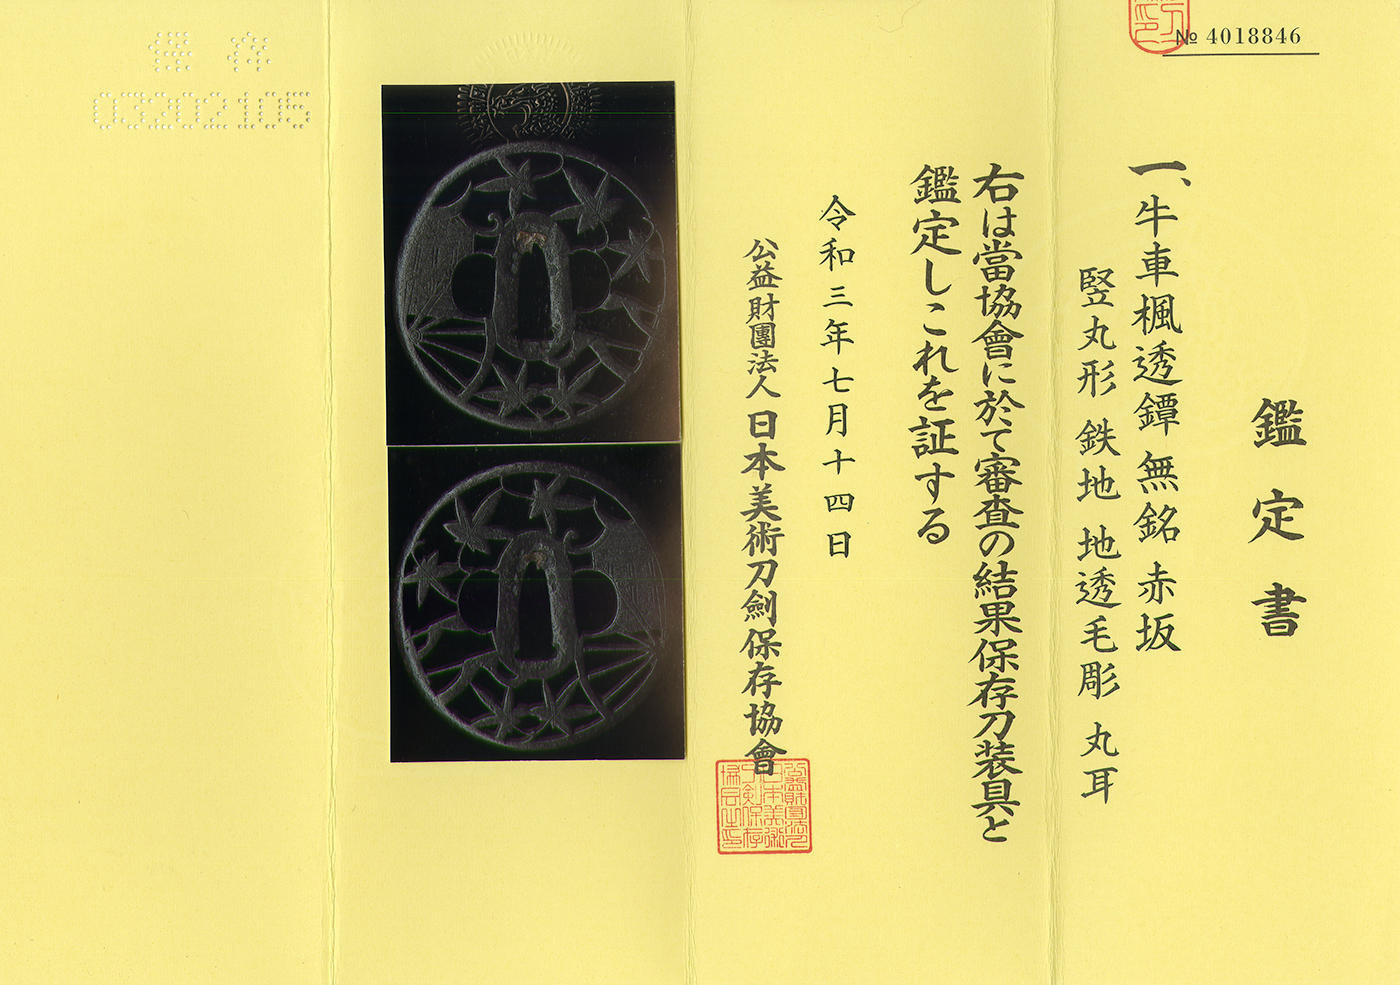 № 4018846
鑑定書
一、牛車楓透鐔 無銘 赤坂
竪丸形 鉄地 地透毛彫 丸耳
右は當協會に於て審査の結果保存刀装具と
鑑定しこれを証する
令和三年七月十四日
公益財團法人 日本美術刀劍保存協會
保存
03202105